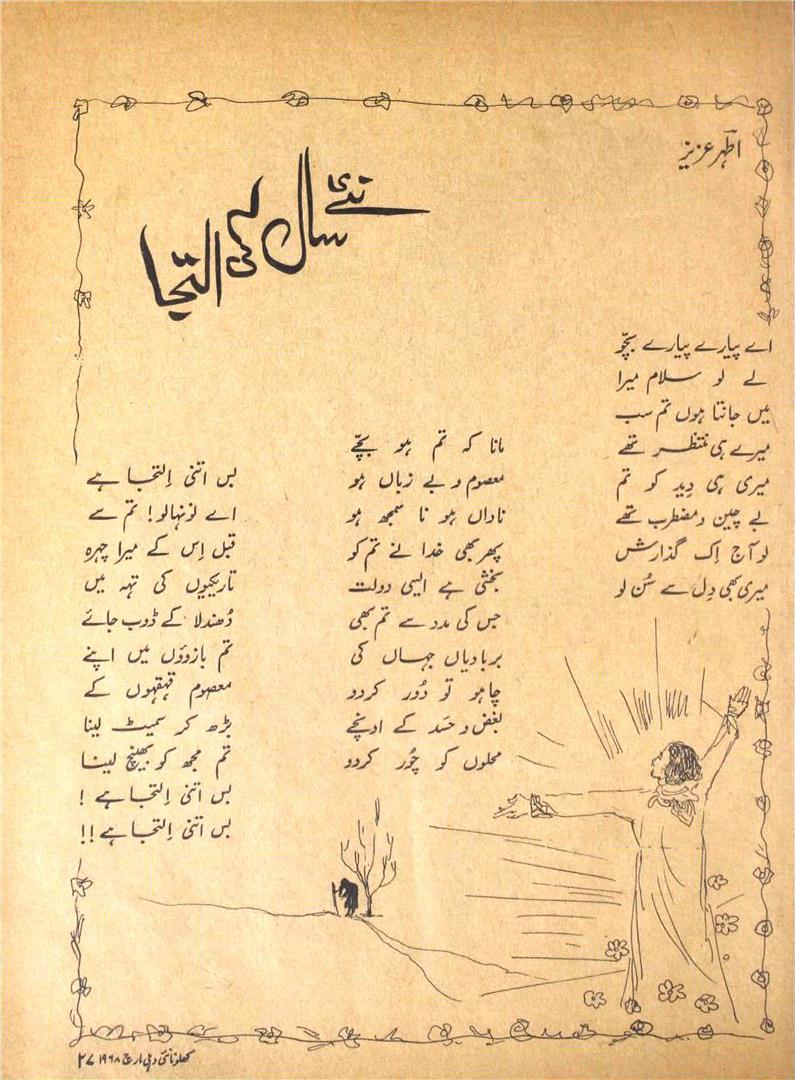 اطہر عزیز
نئے سال کی التجا
اے پیارے پیارے بچّو
لے لو سلام میرا
میں جانتا ہوں تم سب
میرے ہی منتظر تھے
میری ہی دِید کو تم
بے چین و مضطرب تھے
لو آج اِک گذارش
میری بھی دِل سے سُن لو
مانا کہ تم ہو بچّے
معصوم و بے زباں ہو
ناداں ہو نا سمجھ ہو
پھر بھی خدا نے تم کو
بخشی ہے ایسی دولت
جس کی مدد سے تم بھی
بربادیاں جہاں کی
چاہو تو دُور کردو
بغض و حسَد کے اونچے
محلوں کو چُور کردو
بس اتنی اِلتجا ہے
اے نونہالو! تم سے
قبل اِس کے میرا چہرہ
تاریکیوں کی تہہ میں
دُھندلا کے ڈوب جائے
تم بازوؤں میں اپنے
معصوم قہقہوں کے
بڑھ کر سمیٹ لینا
تم مجھ کو بھینچ لینا
بس اتنی اِلتجا ہے !
بس اتنی اِلتجا ہے !!
کھلونا نئی دہلی مارچ ۱۹۶۸ ۲۷